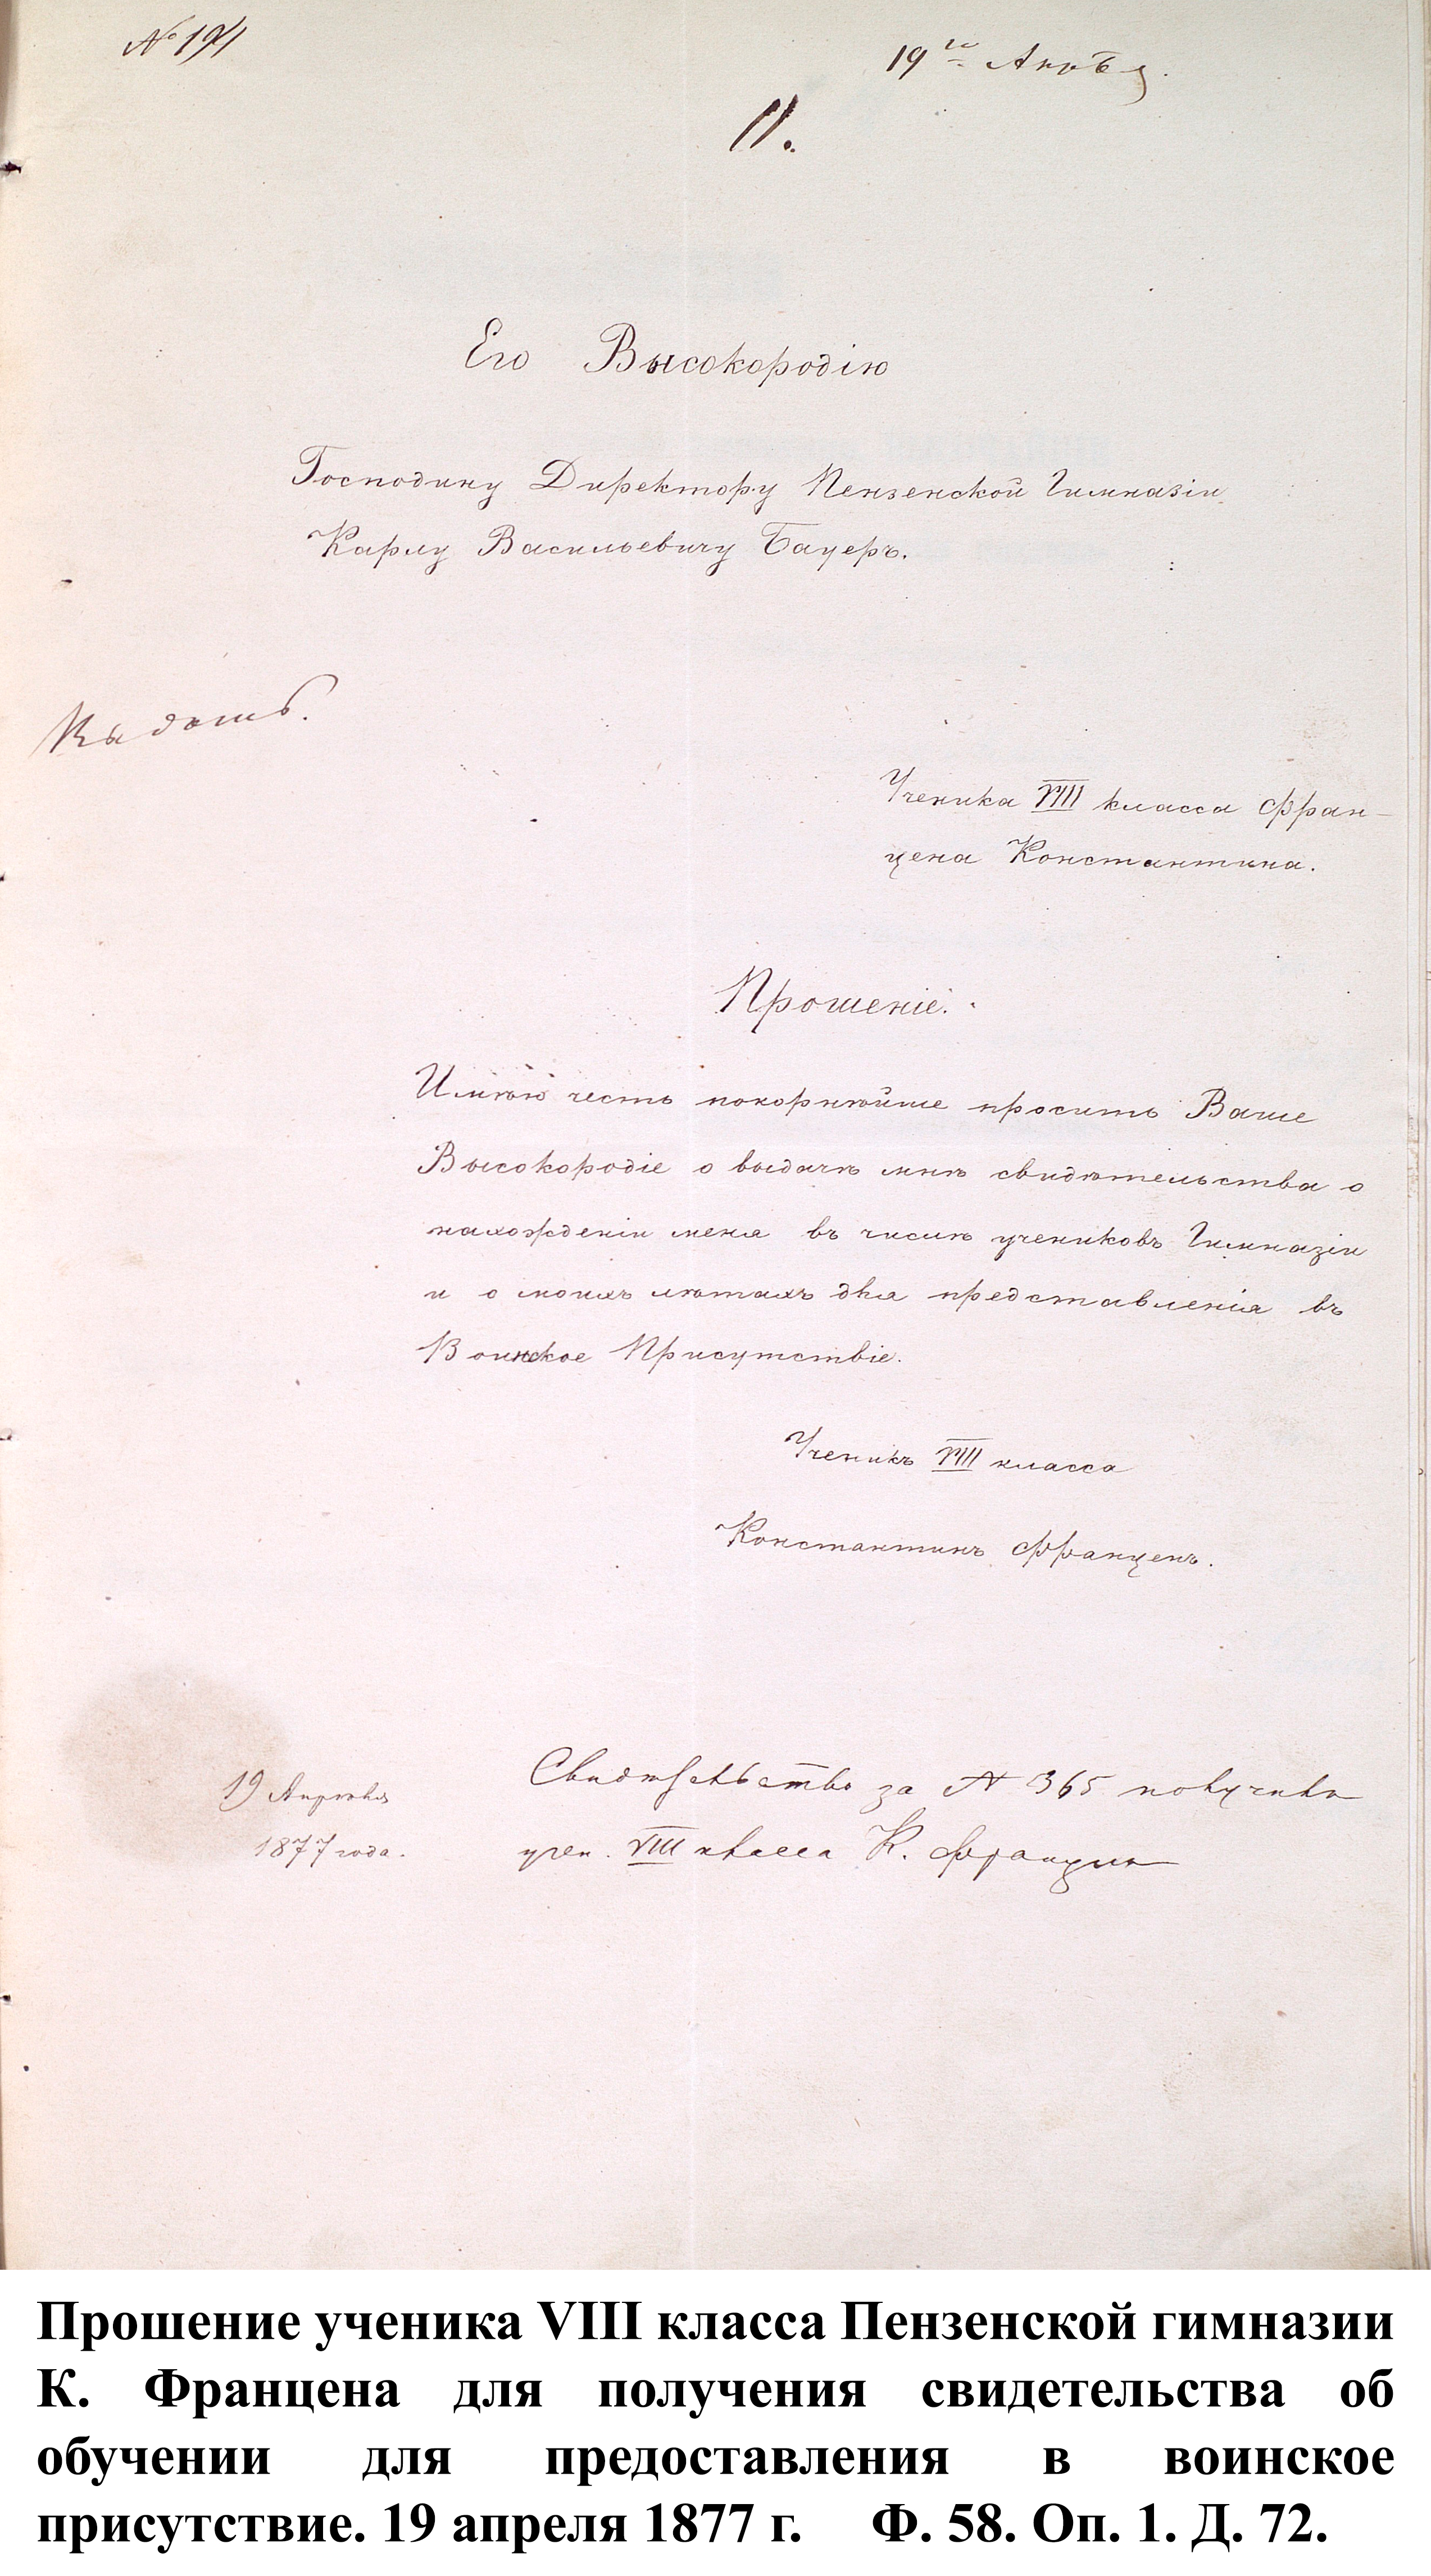 № 194
19го Апрѣля.
11.
Его Высокородію
Господину Директору Пензенской Гимназіи
Карлу Васильевичу Бауеръ.
Выдать.
Ученика VIII класса Фран-
цена Константина.
Прошеніе.
Имѣю честь покорнѣйше просить Ваше
Высокородіе о выдачѣ мнѣ свидѣтельства о
нахожденіи меня въ числѣ учениковъ Гимназіи
и о моихъ лѣтахъ для представленія въ
Воинское Присутствіе.
Ученикъ VIII класса
Константинъ Франценъ.
19 Апрѣля
1877 года.
Свидѣтельство за № 365 получилъ
учен. VIII класса К. Франценъ
Прошение ученика VIII класса Пензенской гимназии
К. Францена для получения свидетельства об
обучении для предоставления в воинское
присутствие. 19 апреля 1877 г. Ф. 58. Оп. 1. Д. 72.